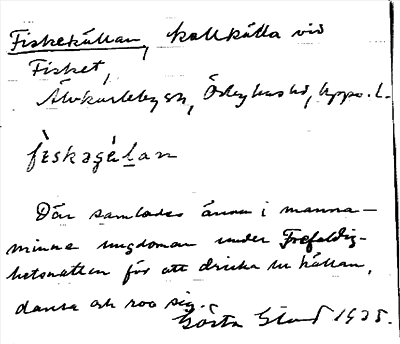 Fiskekällan, kallkälla vid
Fisket,
Älvkarleby sn, Örbyhus hd, Upps. l.
fìskəçélan
Där samlades ännu i manna-
minne ungdomen under Trefaldig-
hetsnatten för att dricka ur källan,
dansa och roo sig.
Gösta 1935.